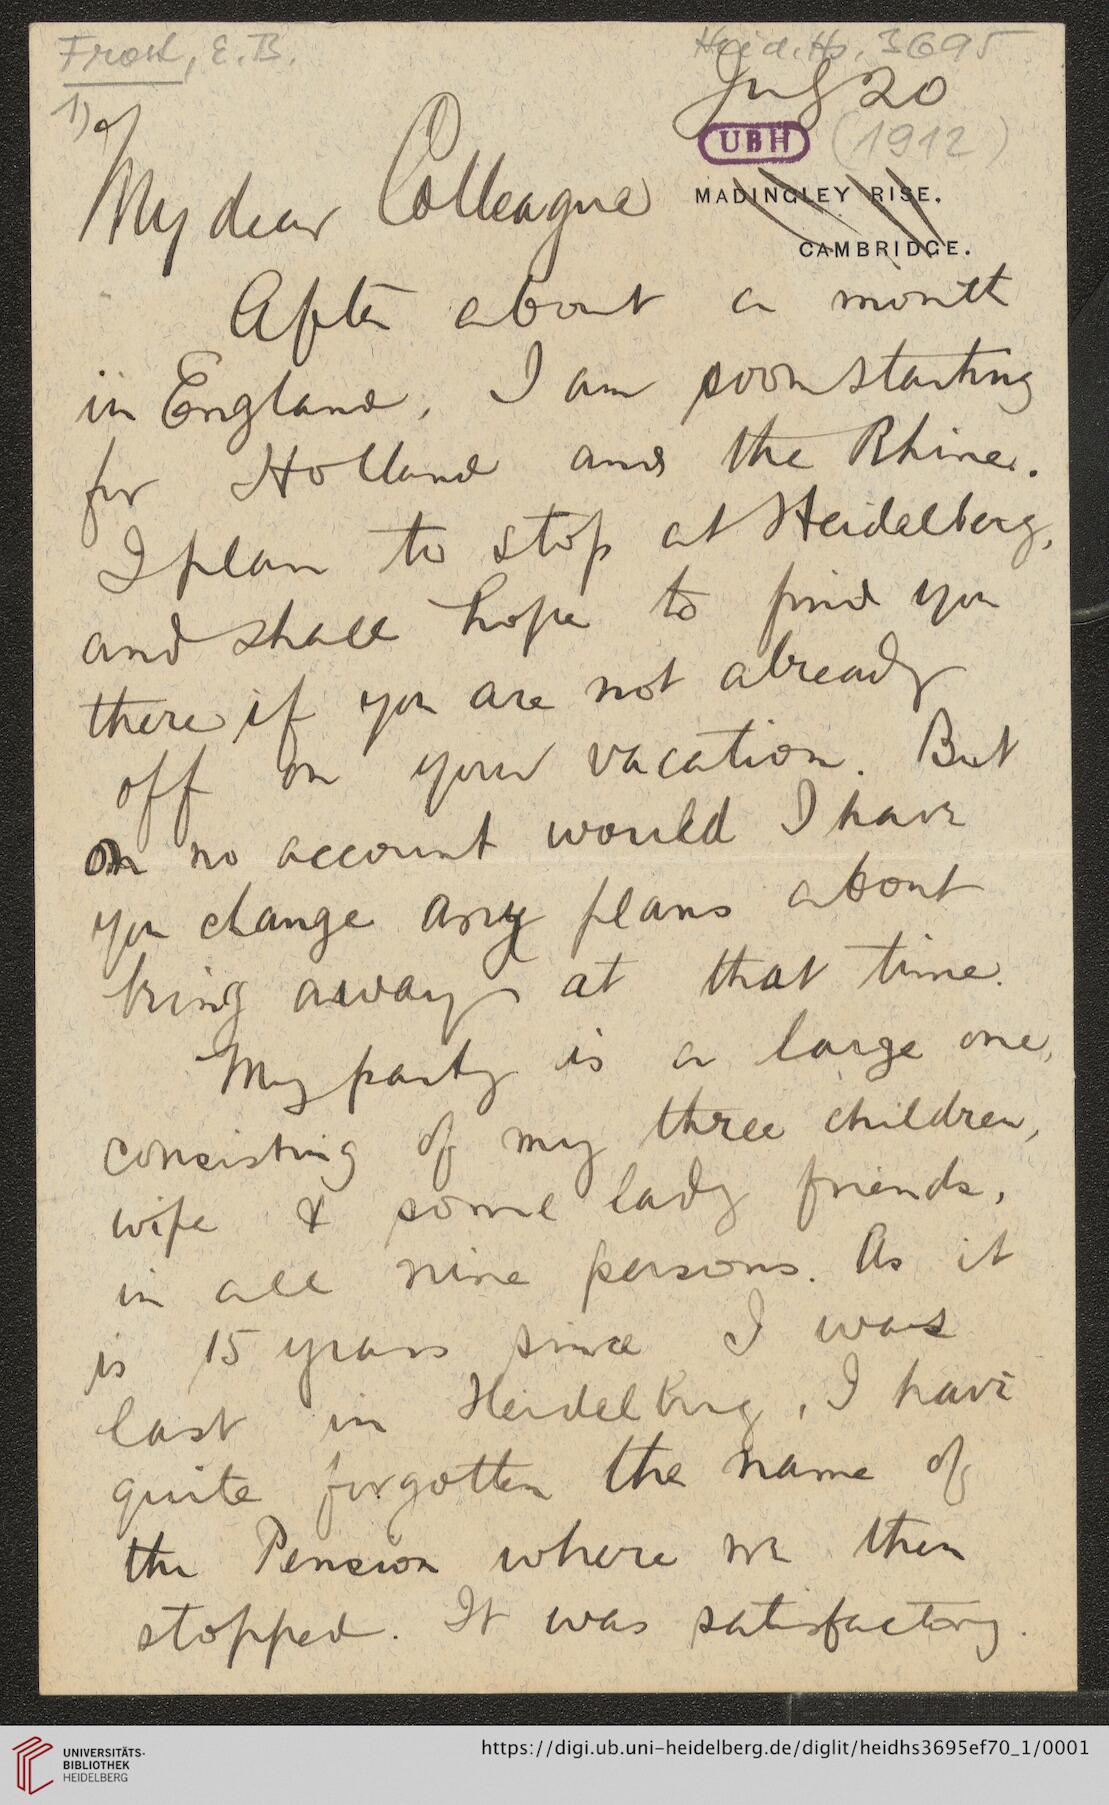 Frost, E. B.
Heid. Hs. 3695
1)
July 20
UBH (1912)
MADINGLEY RISE.
CAMBRIDGE.
My dear Colleague
After about a month
in England, I am soon starting
for Holland and the Rhine.
I plan to stop at Heidelberg,
and shall hope to find you
there if you are not already
off on your vacation. But
on no account would I have
you change any plans about
being away at that time.
My party is a large one,
consisting of my three children,
wife & some lady friends,
in all nine persons. As it
is 15 years since I was
last in Heidelberg, I have
quite forgotten the name of
the Pension where we then
stopped. It was satisfactory.
UNIVERSITÄTS-
BIBLIOTHEK
HEIDELBERG
https://digi.ub.uni-heidelberg.de/diglit/heidhs3695ef70_1/0001